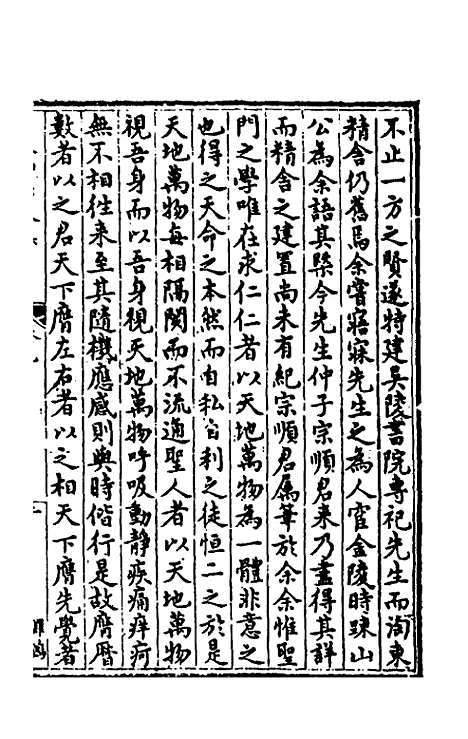 不止一方之賢遂特建吳陵書院專祀先生而淘東
精舍仍舊焉余嘗寤寐先生之為人官金陵時踈山
公為余語其槩今先生仲子宗順君来乃盡得其詳
而精舍之建置尚未有紀宗順君屬筆於余余惟聖
門之學唯在求仁仁者以天地萬物為一體非意之
也得之天命之本然而自私自利之徒恒二之於是
天地萬物每相隔閡而不流通聖人者以天地萬物
視吾身而以吾身視天地萬物呼吸動静疾痛痒疴
無不相徃来至其隨機應感則與時偕行是故膺曆
數者以之君天下膺左右者以之相天下膺先覺者